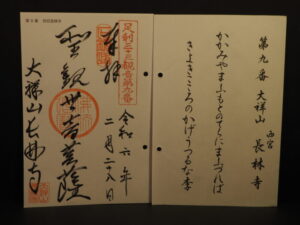 第九番 大祥山 長林寺
西宮
かがみやまふもとのてらにまゐづれば
きよきこころのかげうつるな李
足利三十三観音第九番
奉拝
令和六年
二月二十八日
聖観世音菩薩
大祥山長林寺